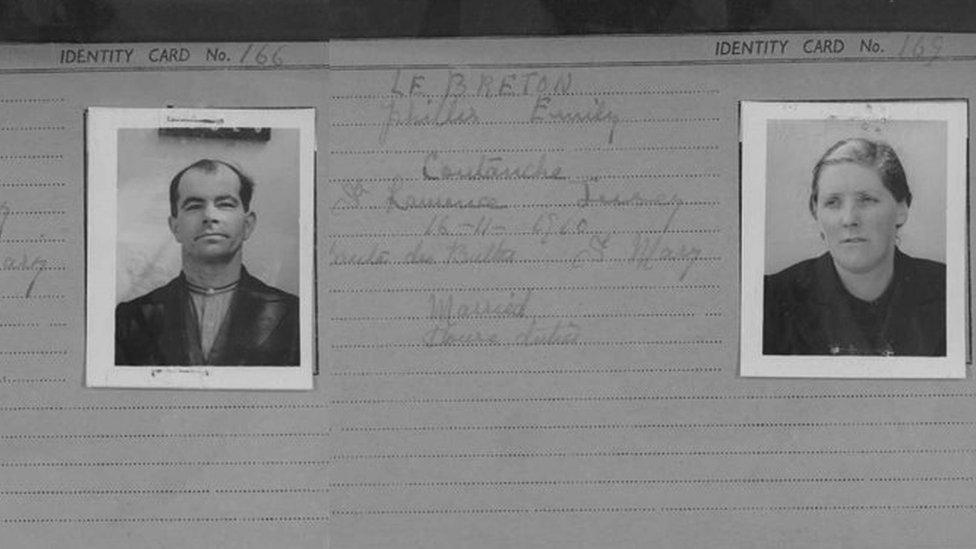 IDENTITY CARD No. 166
ary
IDENTITY CARD No. 169
LE BRETON
Phillis Emily
Coutanche
St Lawrence Jersey
16-11-
St Mary
Married
House duties